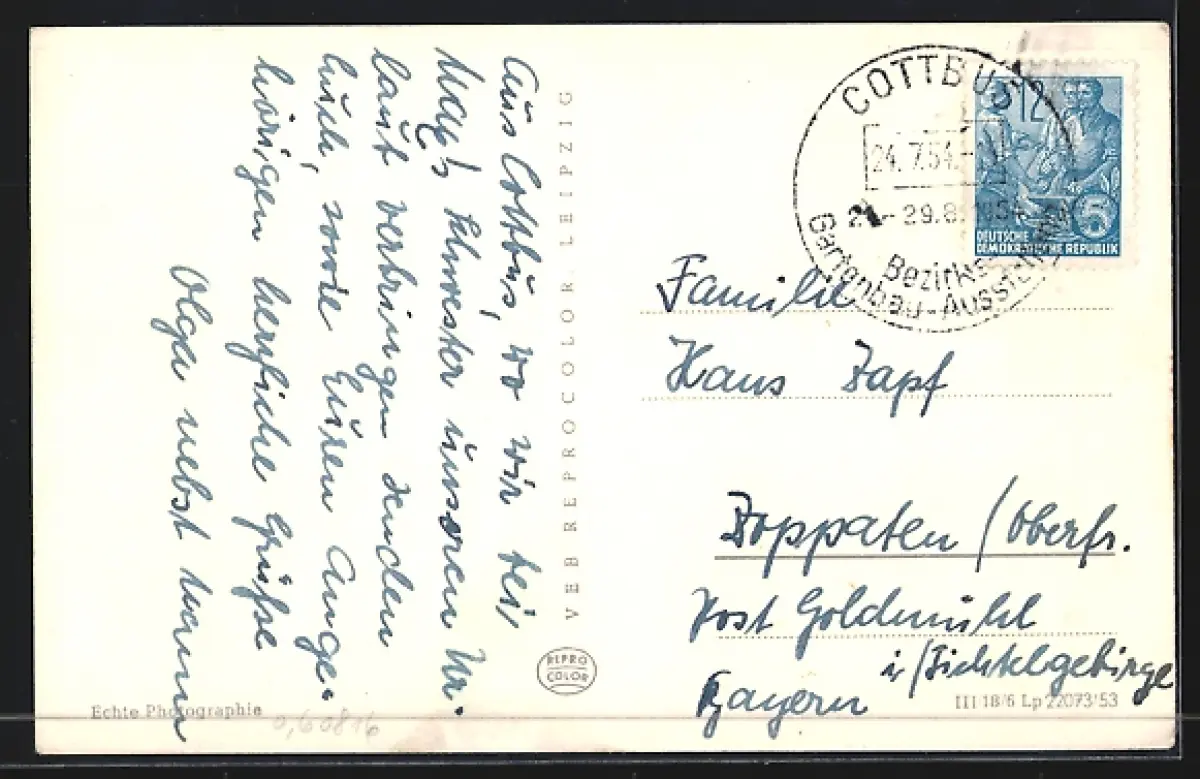 Aus Cottbus, wo wir bei
May's Schwester unseren Ur-
laub verbringen senden
Euch, sowie Euren Ange-
hörigen herzliche Grüße
Olga nebst Mann
VEB REPROCOLOR LEIPZIG
REPRO
COLOR
Echte Photographie
0,60816
COTTBUS
24.7.54.
29.8.1954
Bezirks-
Gartenbau-Ausstellung
12
5
DEUTSCHE
DEMOKRATISCHE REPUBLIK
Familie
Hans Zapf
Zoppaten / Oberfr.
Post Goldmühl
i/Fichtelgebirge
Bayern
III 18/6 Lp 22073/53